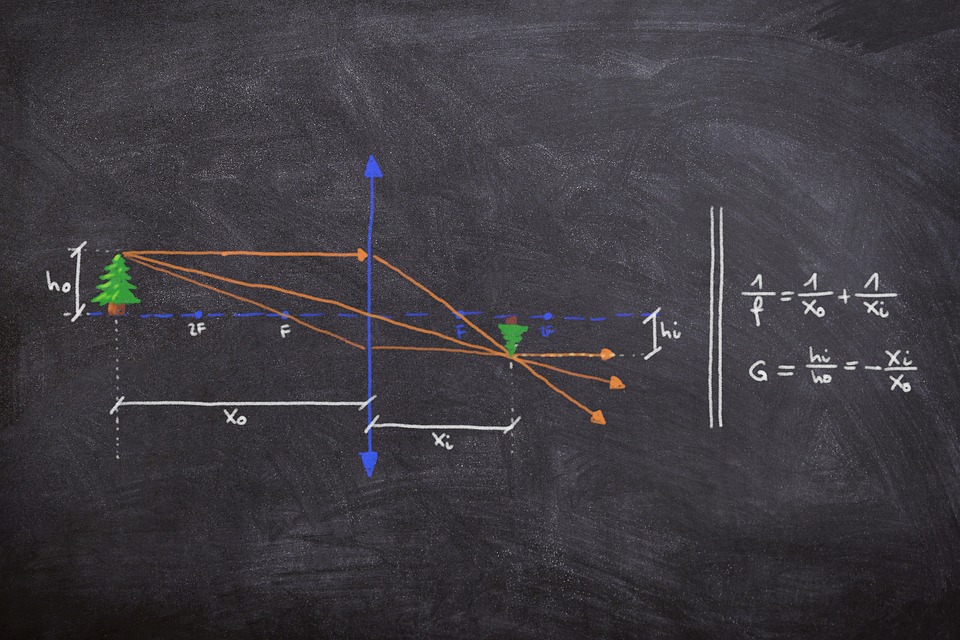 h₀
2F F F 2F
hi
x₀
xi
1/f = 1/x₀ + 1/xi
G = hi/h₀ = -xi/x₀